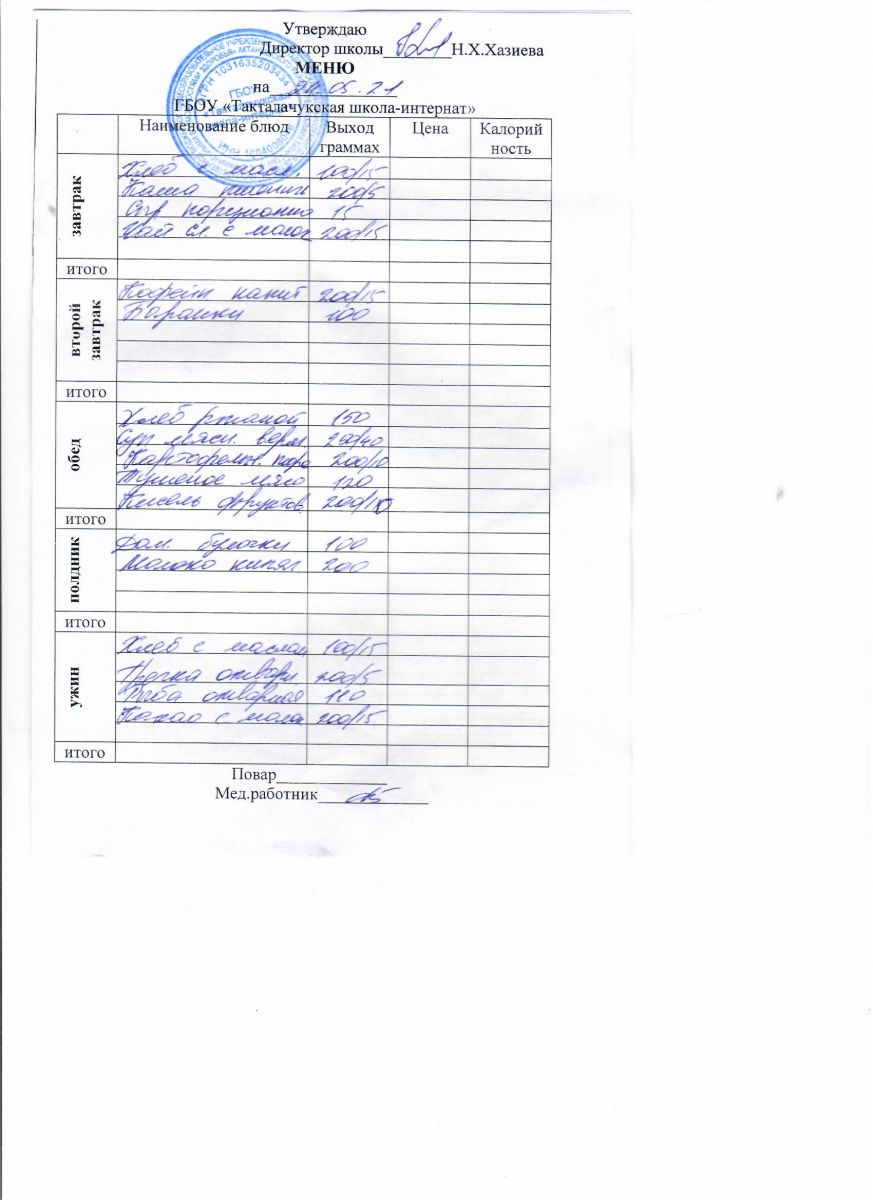 Утверждаю
Директор школы________Н.Х.Хазиева
МЕНЮ
на 24.05.21
ГБОУ «Такталачукская школа-интернат»
ОГРН 1031635203434
ГБОУ
«Такталачукская
школа-интернат»
Наименование блюд Выход граммах Цена Калорий ность
завтрак
Хлеб с масл. 100/15
Каша 200/5
Сыр порционно 15
Чай сл. с молок 200/15
итого
второй завтрак
Кофейн напит 200/15
Баранки 100
итого
обед
Хлеб ржаной 150
Суп мясн. верм. 250/40
Картофельн. пюре 200/10
Тушеное мясо 120
Кисель фруктов. 200/15
итого
полдник
Дом. булочки 100
Молоко кипяч. 200
итого
ужин
Хлеб с маслом 100/15
Гречка отварн. 200/5
Рыба отварная 110
Какао с молок 200/15
итого
Повар____________
Мед.работник____________